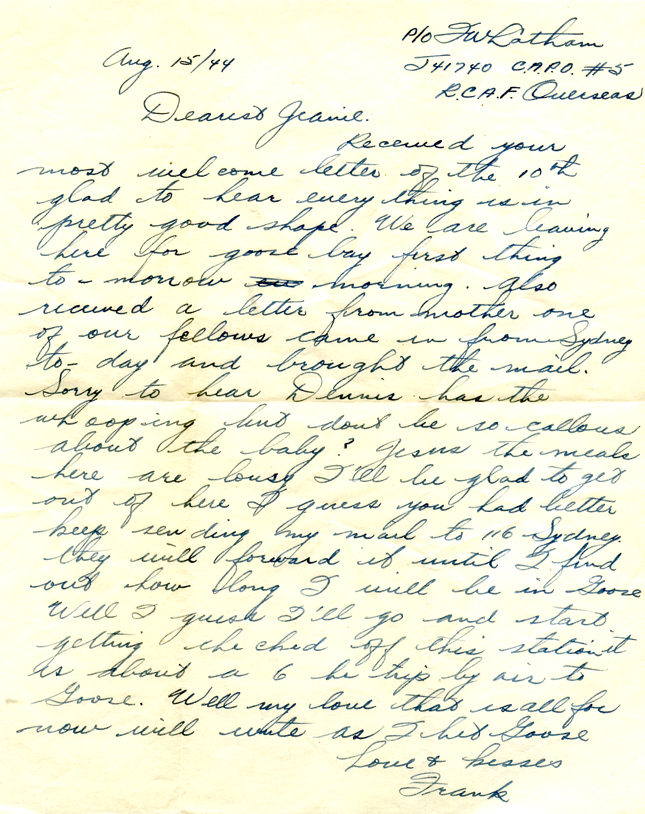 P/O F W Latham
Aug. 15/44
J41740 C.A.P.O. #5
R.C.A.F. Overseas
Dearest Jeanie.
Received your
most welcome letter of the 10th
glad to hear every thing is in
pretty good shape. We are leaving
here for goose bay first thing
to-morrow morning. Also
received a letter from mother one
of our fellows came in from Sydney
to-day and brought the mail.
Sorry to hear Dennis has the
whooping but don't be so callous
about the baby? Jesus the meals
here are lousy I'll be glad to get
out of here I guess you had better
keep sending my mail to 116 Sydney.
they will forward it until I find
out how long I will be in Goose
Well I guess I'll go and start
getting checked off this station it
is about a 6 hr trip by air to
Goose. Well my love that is all for
now will write as I hit Goose
Love & kisses
Frank